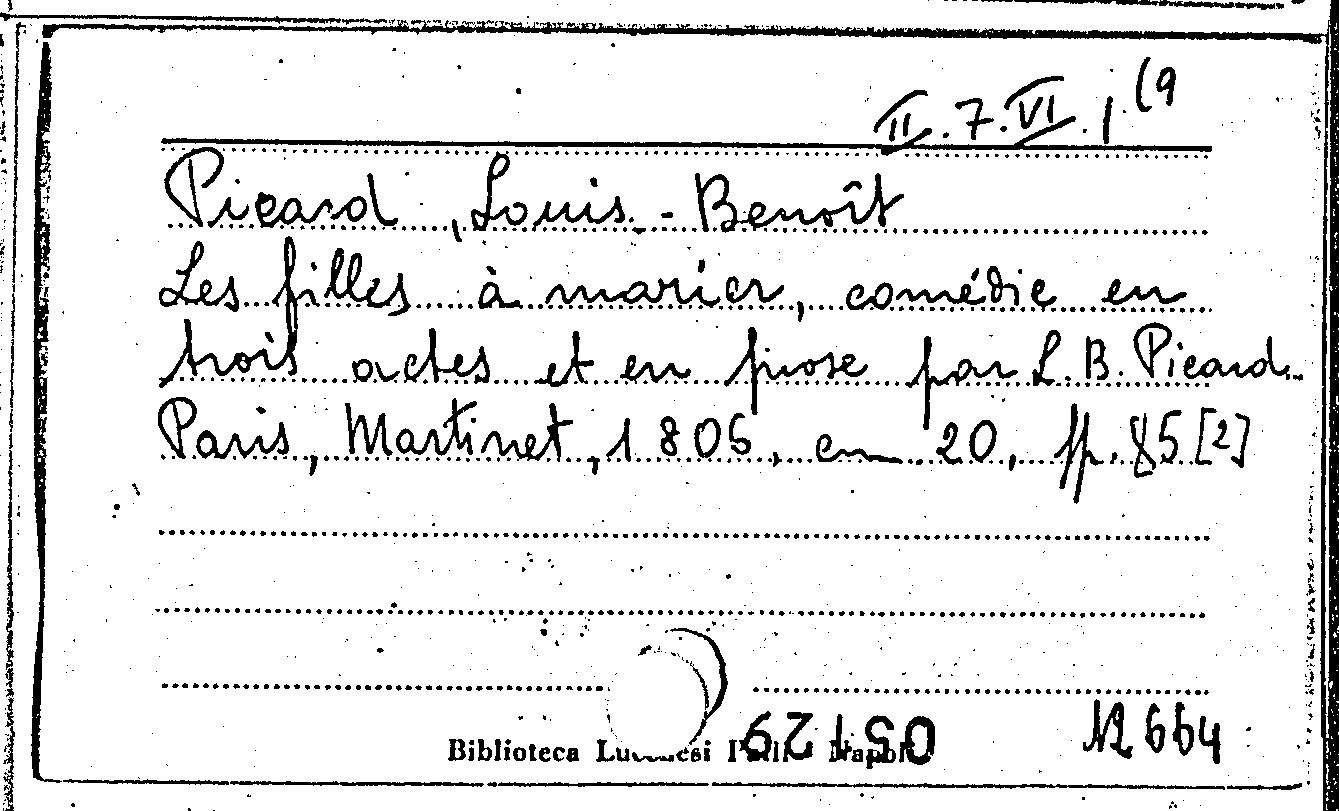 II.7.VI.1(9
Picard, Louis-Benoît
Les filles à marier, comédie en
trois actes et en prose par L.B. Picard.
Paris, Martinet, 1806, cm 20, pp. 85 [2]
Biblioteca Lucchesi Palli Napoli
12664